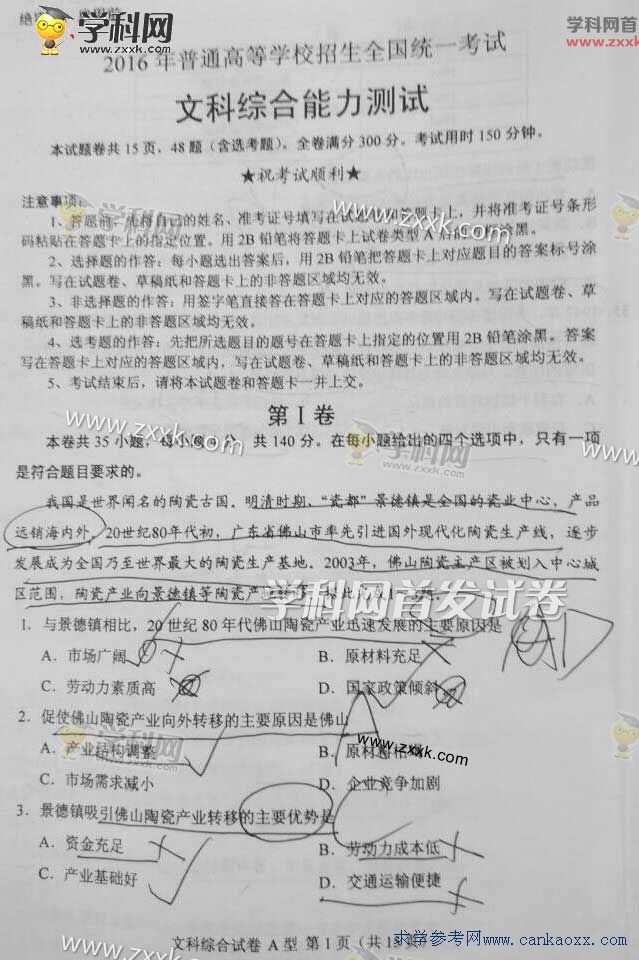 学科网
www.zxxk.com
学科网
www.zxxk.com
2016年普通高等学校招生全国统一考试
文科综合能力测试
本试题卷共15页，48题（含选考题）。全卷满分300分。考试用时150分钟。
★祝考试顺利★
学科网
www.zxxk.com
注意事项：
1、答题前，先将自己的姓名、准考证号填写在试题卷和答题卡上，并将准考证号条形
码粘贴在答题卡上的指定位置。用2B铅笔将答题卡上试卷类型A后的方框涂黑。
2、选择题的作答：每小题选出答案后，用2B铅笔把答题卡上对应题目的答案标号涂
黑。写在试题卷、草稿纸和答题卡上的非答题区域均无效。
3、非选择题的作答：用签字笔直接答在答题卡上对应的答题区域内。写在试题卷、草
稿纸和答题卡上的非答题区域均无效。
4、选考题的作答：先把所选题目的题号在答题卡上指定的位置用2B铅笔涂黑。答案
写在答题卡上对应的答题区域内，写在试题卷、草稿纸和答题卡上的非答题区域均无效。
5、考试结束后，请将本试题卷和答题卡一并上交。
第Ⅰ卷
www.zxxk.com
学科网
zxxk.com
本卷共35小题，每小题 分，共140分。在每小题给出的四个选项中，只有一项
是符合题目要求的。
我国是世界闻名的陶瓷古国。明清时期，“瓷都”景德镇是全国的瓷业中心，产品
远销海内外。20世纪80年代初，广东省佛山市率先引进国外现代化陶瓷生产线，逐步
发展成为全国乃至世界最大的陶瓷生产基地。2003年，佛山陶瓷主产区被划入中心城
区范围，陶瓷产业向景德镇等陶瓷产
学科网首发试卷
1．与景德镇相比，20世纪80年代佛山陶瓷产业迅速发展的主要原因是
A．市场广阔 B．原材料充足
C．劳动力素质高 D．国家政策倾斜
2．促使佛山陶瓷产业向外转移的主要原因是佛山
A．产业结构调整 B．原材
C．市场需求减小 D．企业竞争加剧
学科网
www.zxxk.com
www.zxxk.com
3．景德镇吸引佛山陶瓷产业转移的主要优势是
A．资金充足 B．劳动力成本低
C．产业基础好 D．交通运输便捷
文科综合试卷 A型 第1页（共15页）
www.zxxk.com
求学参考网www.cankaoxx.com